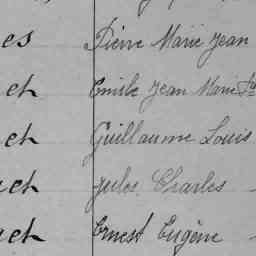 es Pierre Marie Jean
ch Emile Jean Marie
ch Guillaume Louis
ch Jules Charles
ach Ernest Eugène